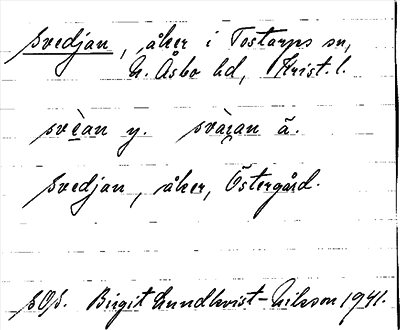 Svedjan, åker i Tostarps sn,
N. Åsbo hd, Krist. l.
svèan y. svàʒan ä.
Svedjan, åker, Östergård.
SOS. Birgit Lundkvist-Nilsson 1941.